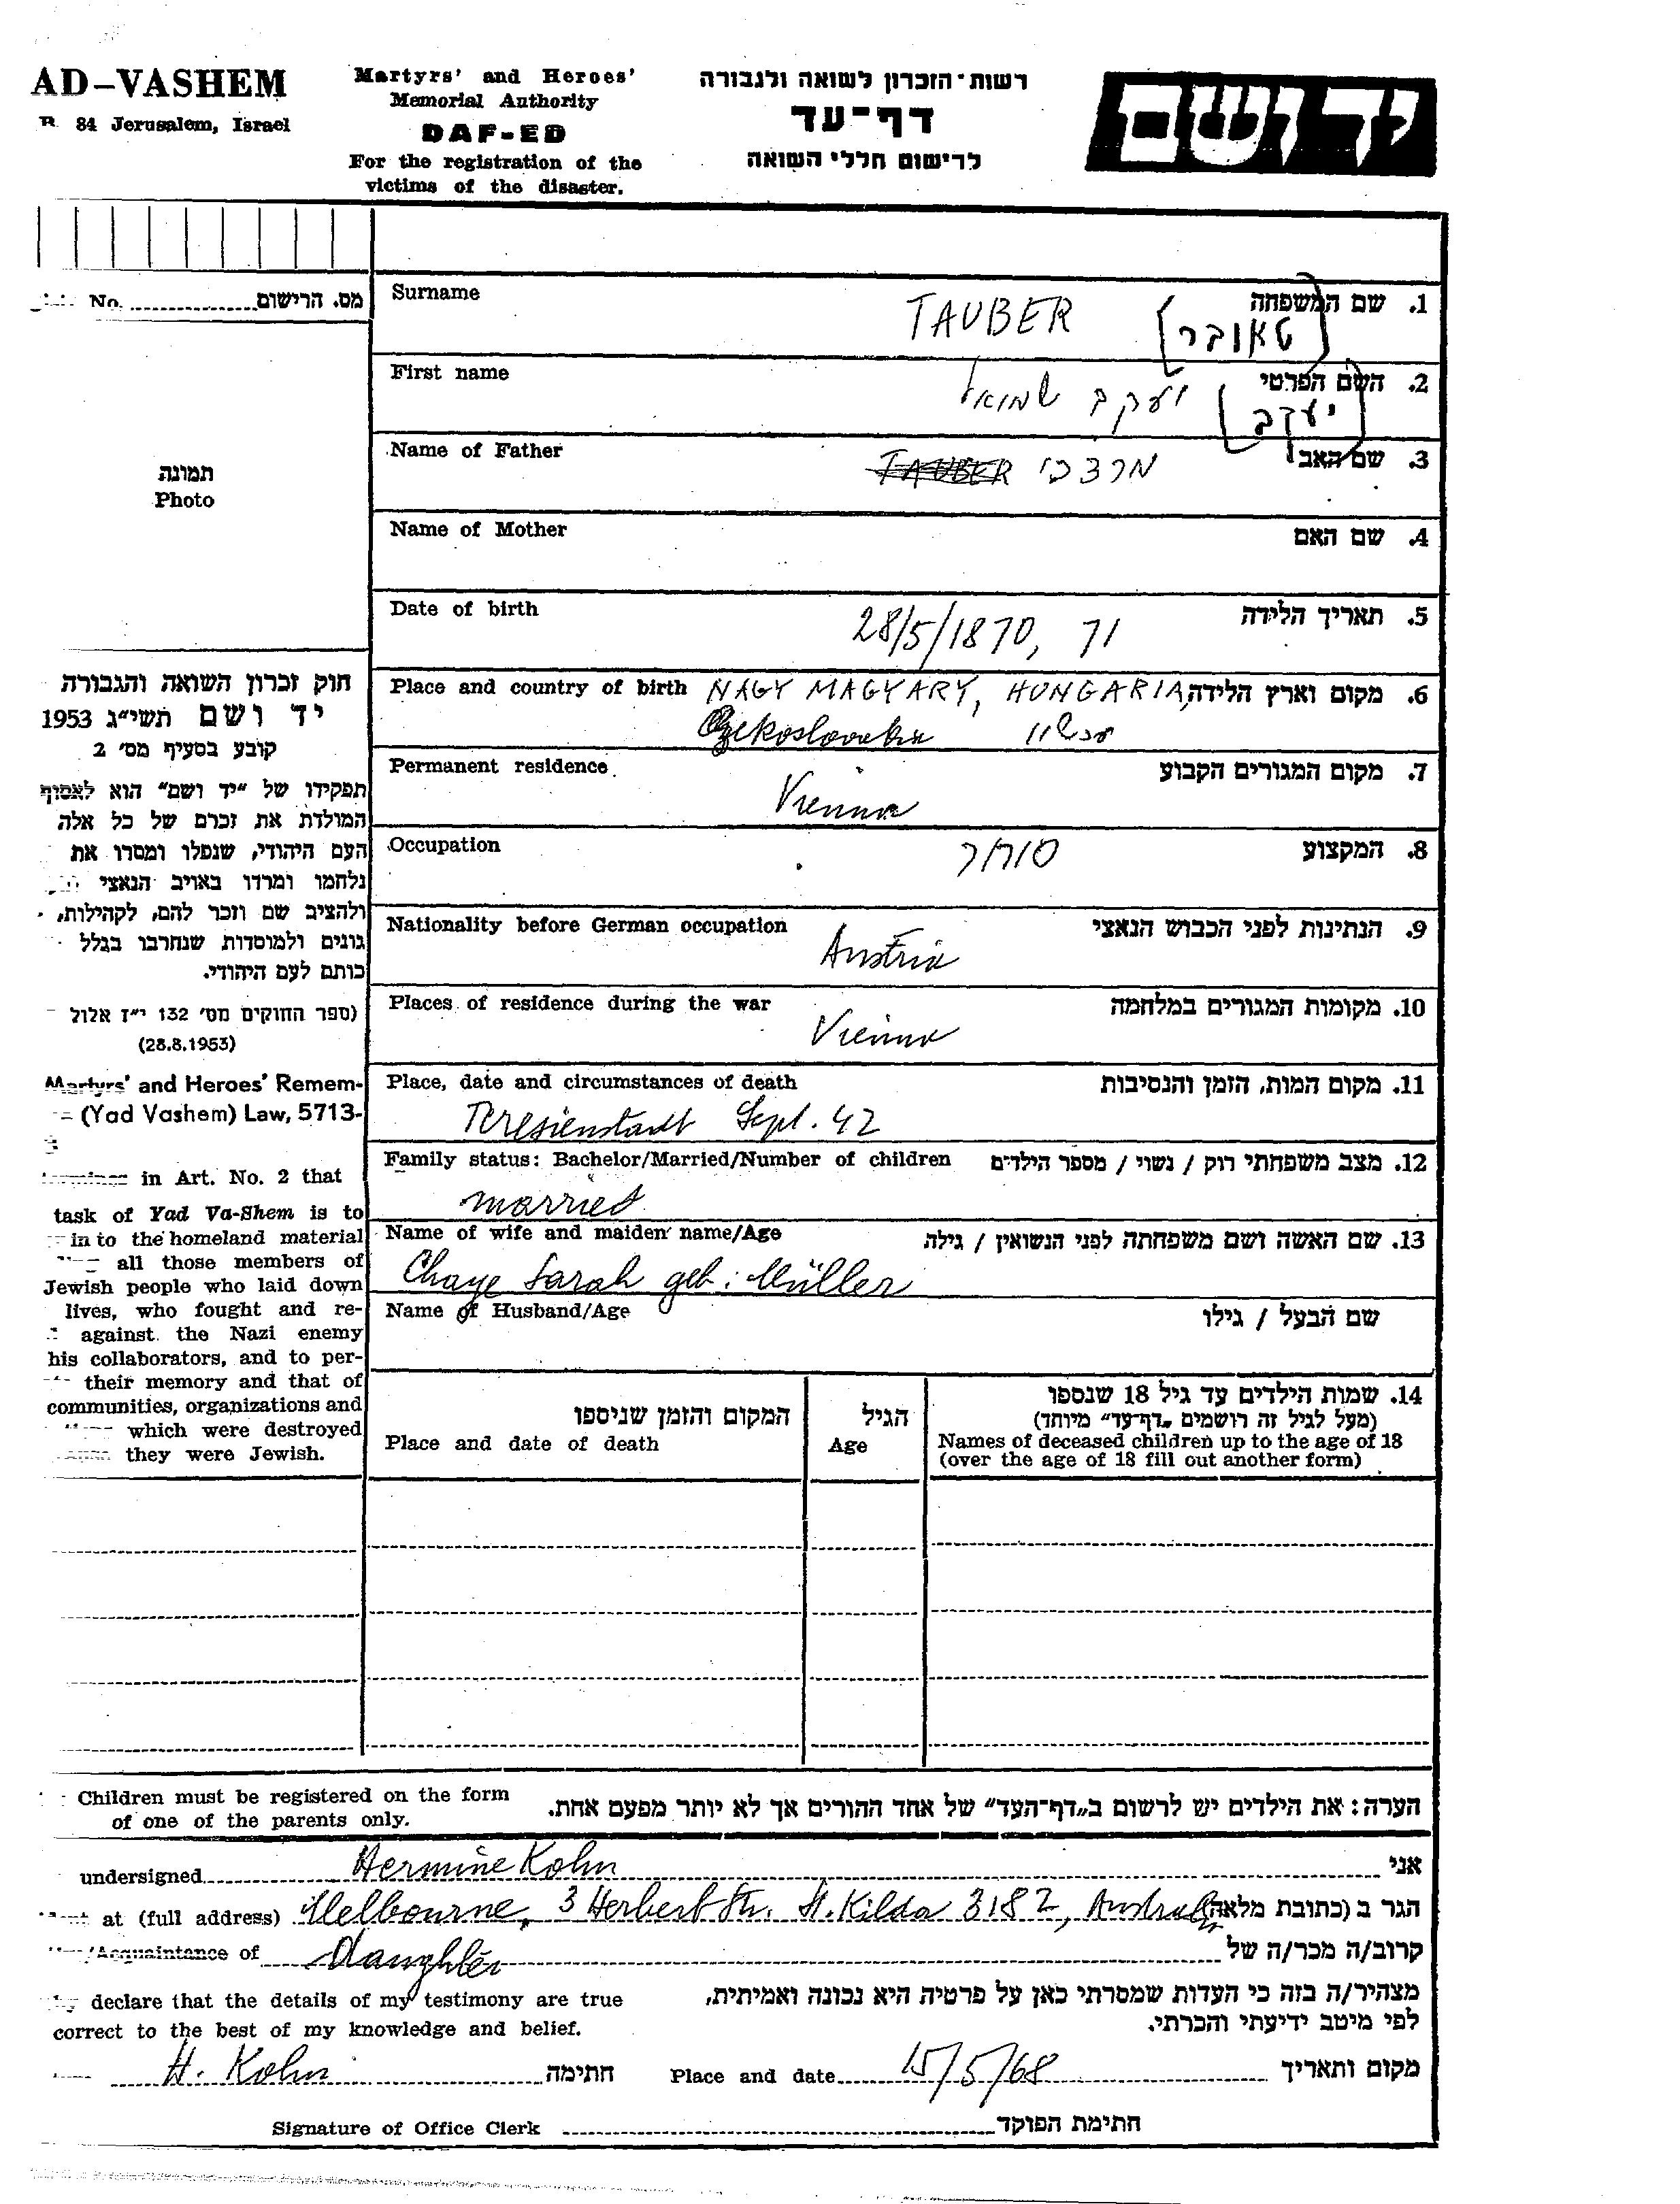 AD-VASHEM
B. 84 Jerusalem, Israel
Martyrs' and Heroes'
Memorial Authority
DAF-ED
For the registration of the
victims of the disaster.
רשות-הזכרון לשואה ולגבורה
דף-עד
לרישום חללי השואה
יד ושם
No. מס. הרישום
תמונה
Photo
חוק זכרון השואה והגבורה
יד ושם תשי״ג 1953
קובע בסעיף מס׳ 2
תפקידו של ״יד ושם״ הוא לאסוף
המולדת את זכרם של כל אלה
העם היהודי, שנפלו ומסרו את
נלחמו ומרדו באויב הנאצי
ולהציב שם וזכר להם, לקהילות,
גונים ולמוסדות שנחרבו בגלל
כותם לעם היהודי.
(ספר החוקים מס׳ 132 י״ז אלול
(28.8.1953)
Martyrs' and Heroes' Remem-
(Yad Vashem) Law, 5713-
in Art. No. 2 that
task of Yad Va-Shem is to
in to the homeland material
all those members of
Jewish people who laid down
lives, who fought and re-
against the Nazi enemy
his collaborators, and to per-
their memory and that of
communities, organizations and
which were destroyed
they were Jewish.
Surname 1. שם המשפחה
TAUBER [טאובר]
First name 2. השם הפרטי
יעקב שמואל [יעקב]
Name of Father 3. שם האב
TAUBER מרדכי
Name of Mother 4. שם האם
Date of birth 5. תאריך הלידה
28/5/1870, 71
Place and country of birth NAGY MAGYARY, HUNGARIA, 6. מקום וארץ הלידה
Permanent residence 7. מקום המגורים הקבוע
Vienna
Occupation 8. המקצוע
סוחר
Nationality before German occupation 9. הנתינות לפני הכבוש הנאצי
Austria
Places of residence during the war 10. מקומות המגורים במלחמה
Vienna
Place, date and circumstances of death 11. מקום המות, הזמן והנסיבות
Teresienstadt Sept. 42
Family status: Bachelor/Married/Number of children 12. מצב משפחתי רוק / נשוי / מספר הילדים
married
Name of wife and maiden name/Age 13. שם האשה ושם משפחתה לפני הנשואין / גילה
Chaye Sarah geb: Müller
Name of Husband/Age שם הבעל / גילו
14. שמות הילדים עד גיל 18 שנספו
(מעל לגיל זה רושמים „דף-עד״ מיוחד)
Names of deceased children up to the age of 18
(over the age of 18 fill out another form)
הגיל
Age
המקום והזמן שניספו
Place and date of death
Children must be registered on the form
of one of the parents only.
הערה: את הילדים יש לרשום ב„דף-העד״ של אחד ההורים אך לא יותר מפעם אחת.
undersigned Hermine Kohn אני
at (full address) Melbourne, 3 Herbert Str. St. Kilda 3182, Australia הגר ב (כתובת מלאה)
/Acquaintance of daughter קרוב/ה מכר/ה של
declare that the details of my testimony are true
correct to the best of my knowledge and belief.
מצהיר/ה בזה כי העדות שמסרתי כאן על פרטיה היא נכונה ואמיתית,
לפי מיטב ידיעתי והכרתי.
H. Kohn חתימה Place and date 15/5/68 מקום ותאריך
Signature of Office Clerk חתימת הפוקד